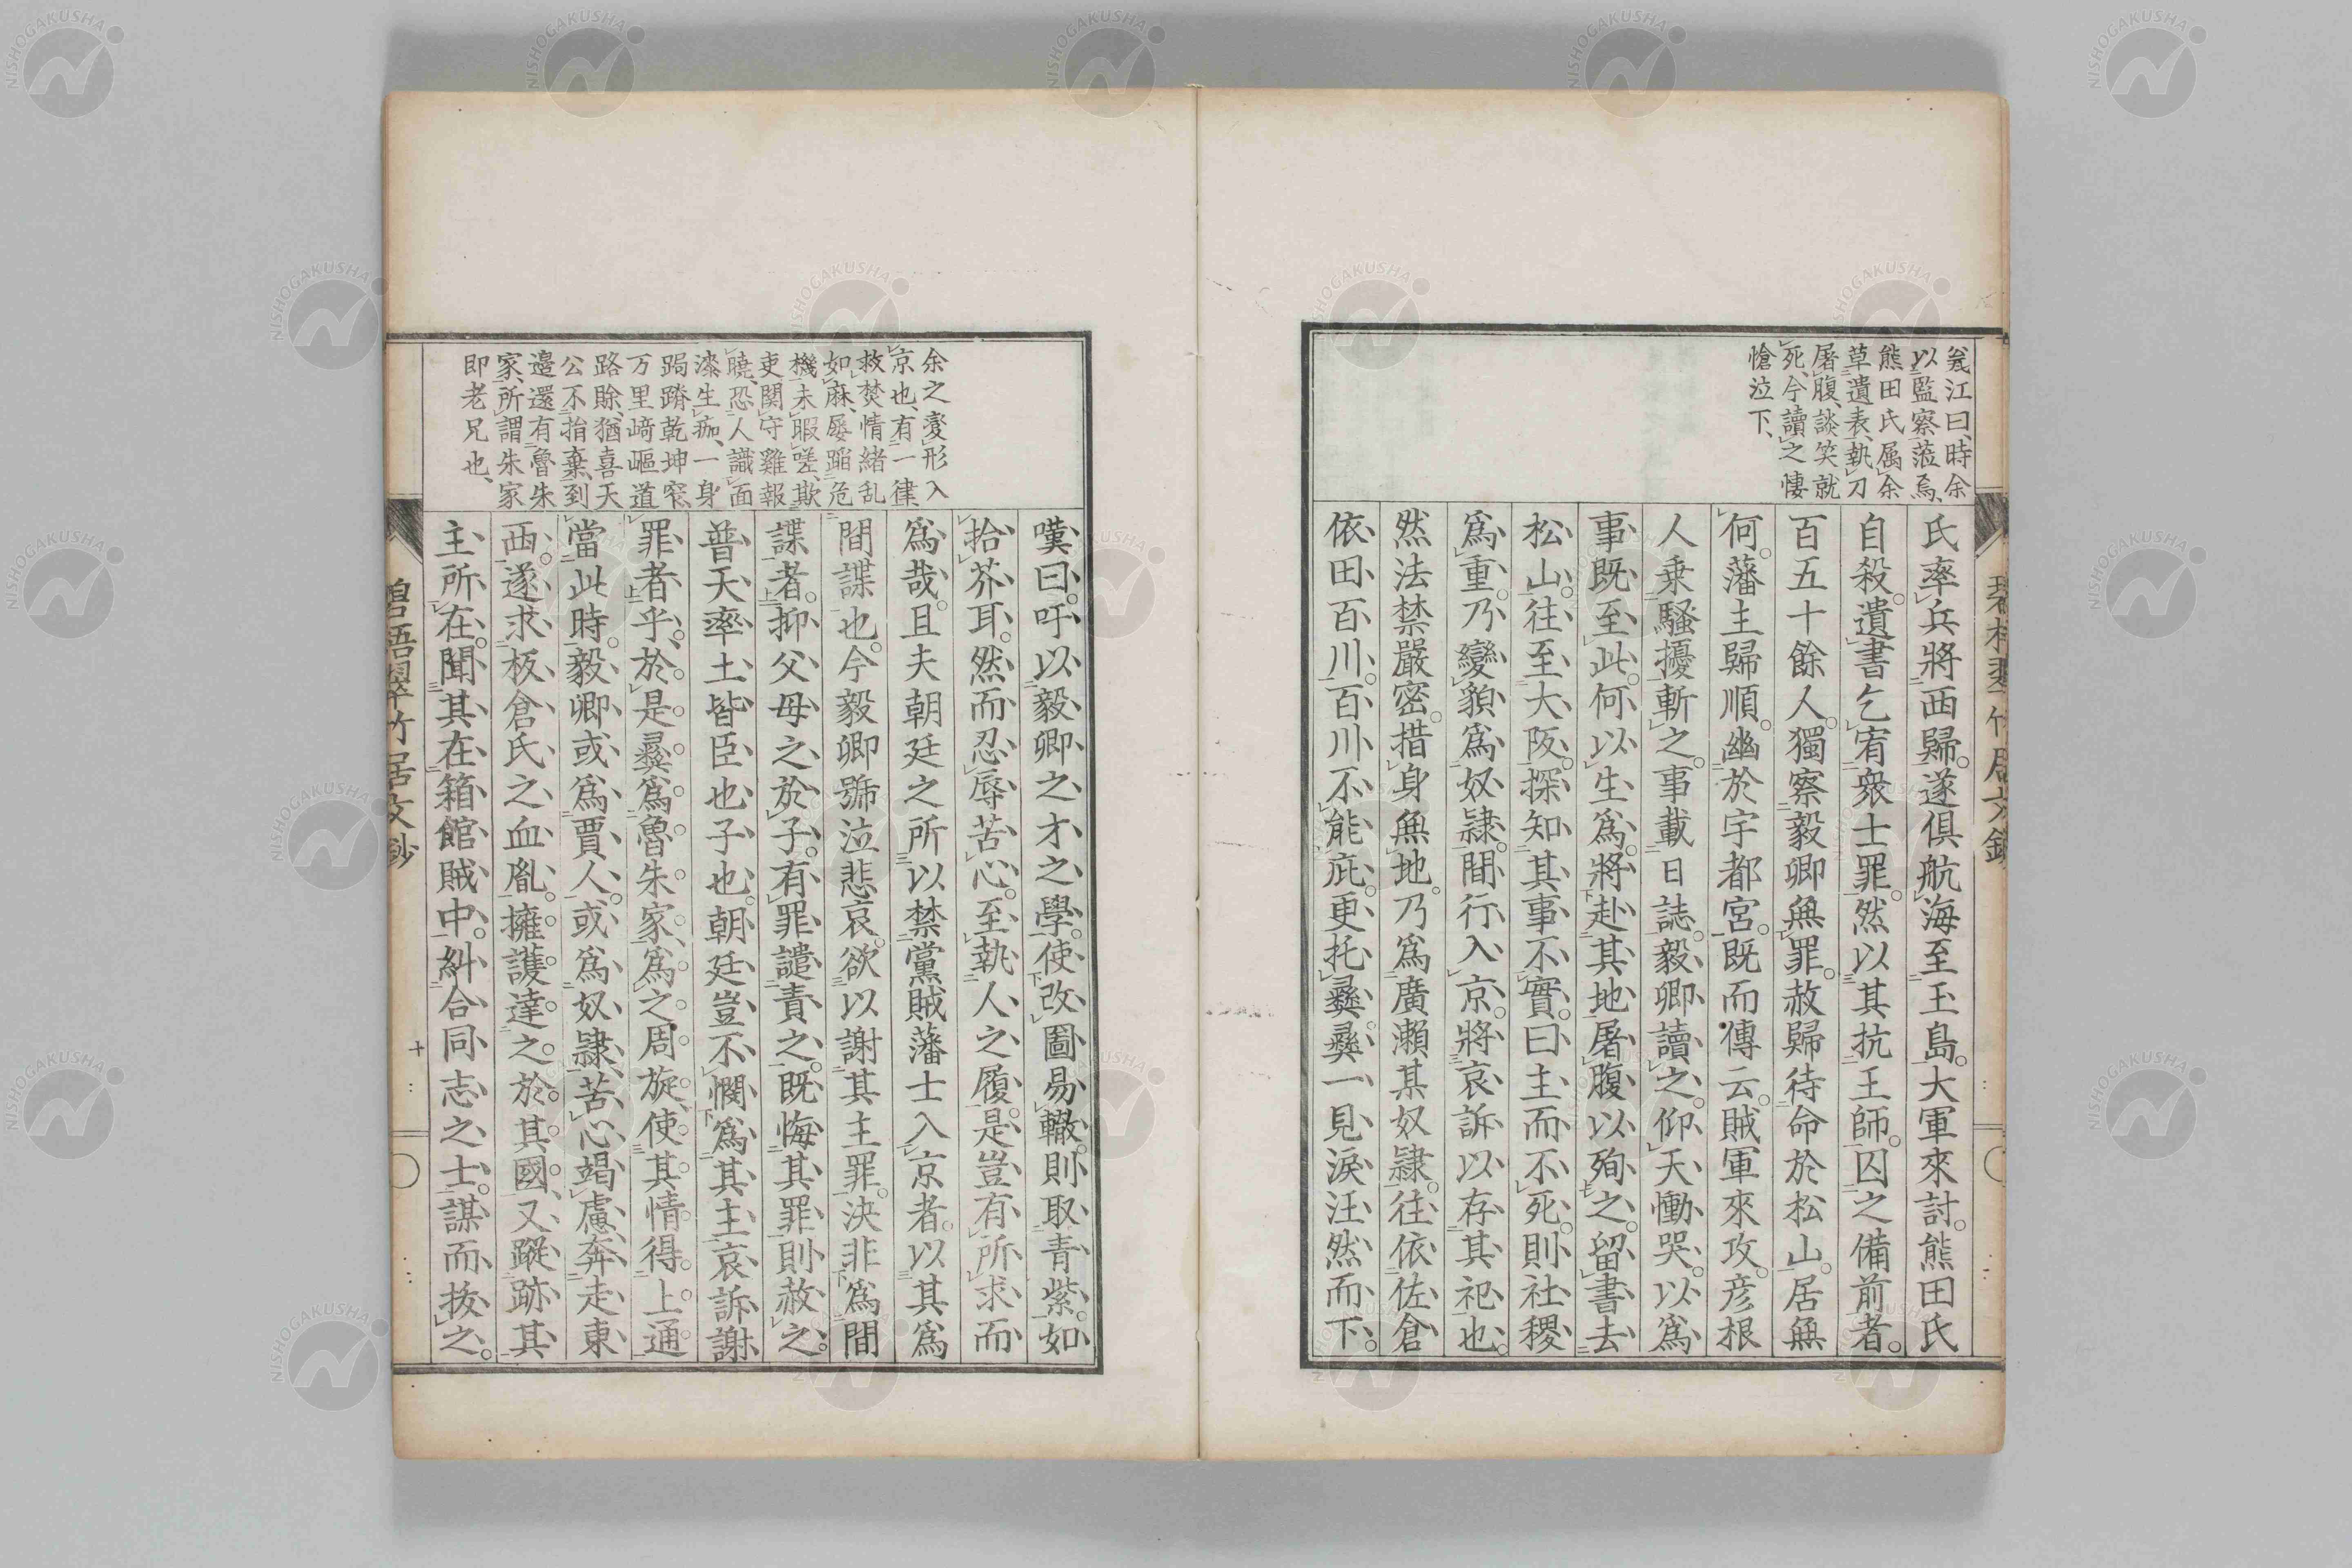 毅江曰、時余
以監察蒞焉、
熊田氏属余
草遺表、執刀
屠腹、談笑就
死、今讀之悽
愴泣下、
氏率兵將西歸。遂俱航海至玉島。大軍來討。熊田氏
自殺。遺書乞宥衆士罪。然以其抗王師。囚之備前者。
百五十餘人。獨察毅卿無罪。赦歸待命於松山。居無
何。藩主歸順。幽於宇都宮。既而傳云。賊軍來攻。彦根
人乗騷擾斬之。事載日誌。毅卿讀之。仰天慟哭。以爲
事既至此。何以生爲。將赴其地屠腹以殉之。留書去
松山。往至大阪。探知其事不實。曰主而不死。則社稷
爲重。乃變貌爲奴隷。間行入京。將哀訴以存其祀也。
然法禁嚴密。措身無地。乃爲廣瀬某奴隷。往依佐倉
依田百川。百川不能庇。更托彜。彜一見涙汪然而下。
余之変形入
京也、有一律、
救焚情緒乱
如麻、屡蹈危
機未暇嗟、欺
吏関守雞報
曉、恐人識面
漆生痂、一身
跼蹐乾坤窄、
万里崎嶇道
路賒、猶喜天
公不指棄、到
邊還有魯朱
家、所謂朱家
即老兄也、
嘆曰。吁以毅卿之才之學。使改圖易轍。則取青紫。如
拾芥耳。然而忍辱苦心。至執人之履。是豈有所求而
爲哉。且夫朝廷之所以禁黨賊藩士入京者。以其爲
間諜也。今毅卿號泣悲哀。欲以謝其主罪。決非爲間
諜者。抑父母之於子。有罪譴責之。既悔其罪。則赦之。
普天率土皆臣也子也。朝廷豈不憫爲其主哀訴謝
罪者乎。於是彜爲魯朱家、爲之周旋、使其情得上通
當此時。毅卿或爲賈人。或爲奴隷。苦心竭慮。奔走東
西。遂求板倉氏之血胤。擁護達之於其國、又蹤跡其
主所在。聞其在箱館賊中。糾合同志之士。謀而拔之。
碧梧翠竹居文鈔
十